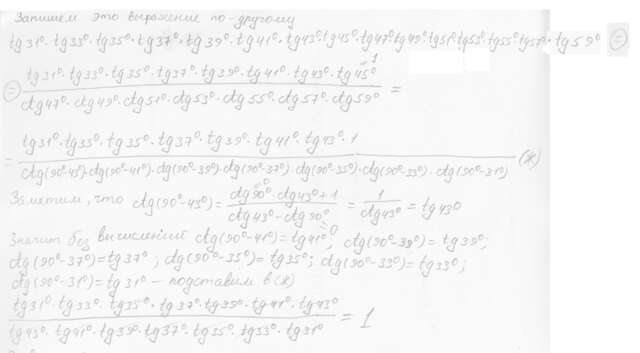 Запишем это выражение по-другому
tg31°·tg33°·tg35°·tg37°·tg39°·tg41°·tg43°·tg45°·tg47°·tg49°·tg51°·tg53°·tg55°·tg57°·tg59° =
= tg31°·tg33°·tg35°·tg37°·tg39°·tg41°·tg43°·tg45° =1
ctg47°·ctg49°·ctg51°·ctg53°·ctg55°·ctg57°·ctg59° =
tg31°·tg33°·tg35°·tg37°·tg39°·tg41°·tg43°·1
= ctg(90°-43°)·ctg(90°-41°)·ctg(90°-39°)·ctg(90°-37°)·ctg(90°-35°)·ctg(90°-33°)·ctg(90°-31°) (*)
Заметим, что ctg(90°-43°) = ctg90°·ctg43°+1 / ctg43°-ctg90° = 1 / ctg43° = tg43°
=0
=0
Значит без вычислений ctg(90°-41°)=tg41°, ctg(90°-39°)=tg39°;
ctg(90°-37°)=tg37°; ctg(90°-35°)=tg35°; ctg(90°-33°)=tg33°;
ctg(90°-31°)=tg31° — подставим в (*)
tg31°·tg33°·tg35°·tg37°·tg39°·tg41°·tg43°
tg43°·tg41°·tg39°·tg37°·tg35°·tg33°·tg31° = 1